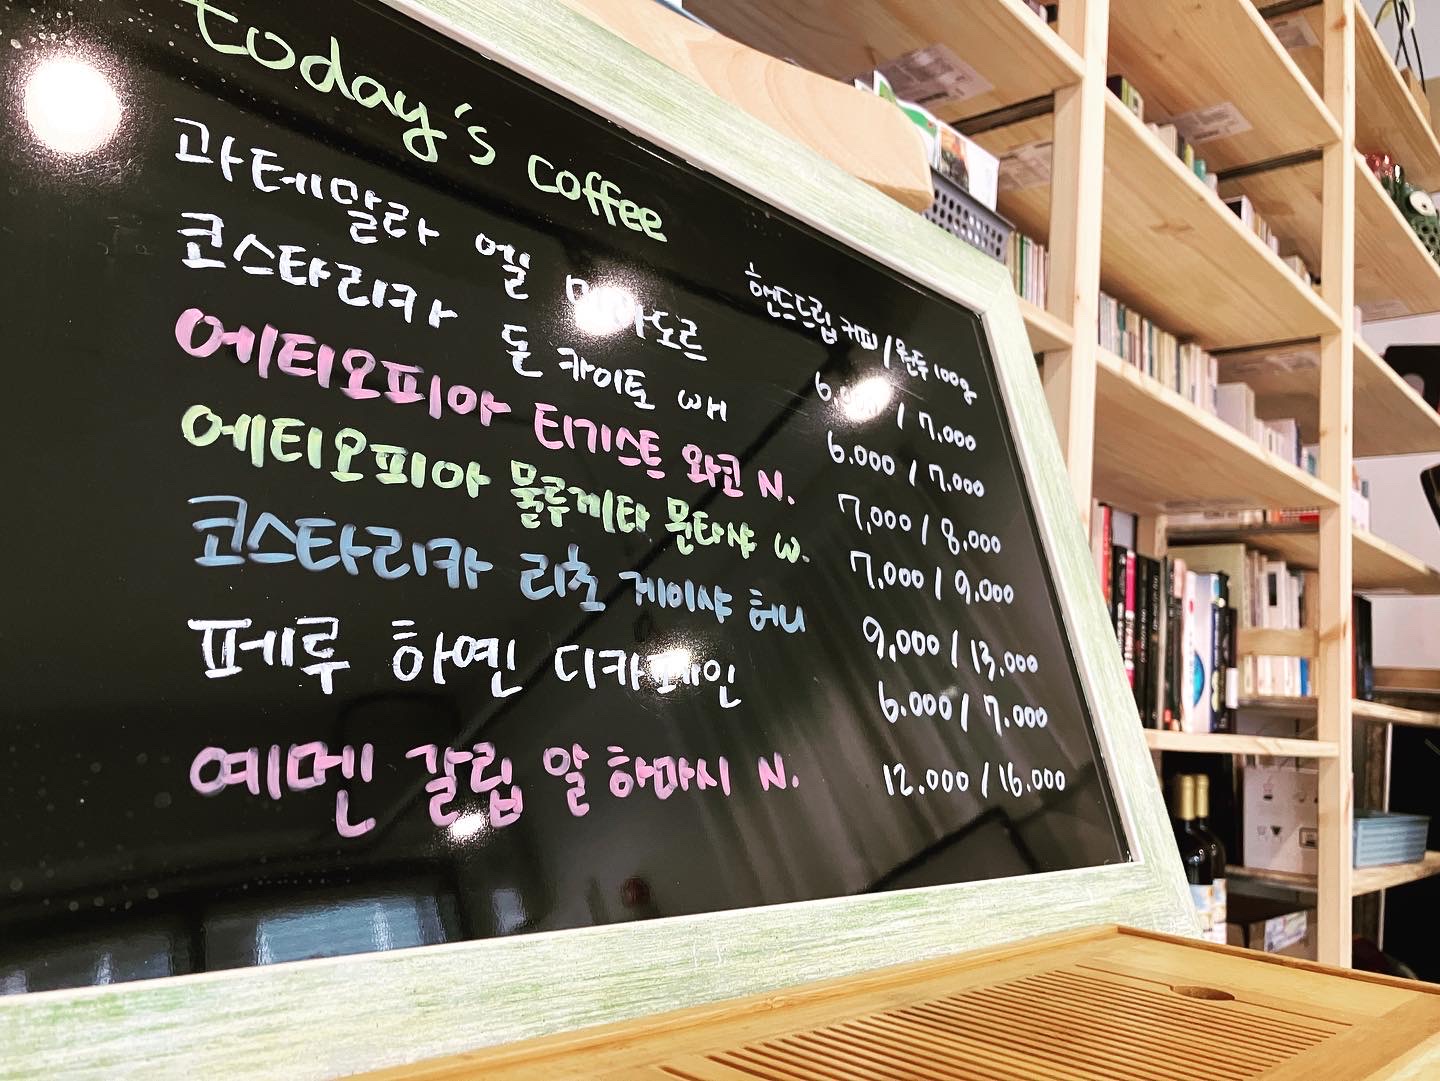 today's coffee
핸드드립 커피 / 원두 100g
과테말라 엘 도르 / 7.000
코스타리카 돈 카이토 WH 6.000 / 7.000
에티오피아 티기스트 와코 N. 7,000 / 8,000
에티오피아 물루게타 문타샤 W. 7,000 / 9,000
코스타리카 리초 게이샤 허니 9,000 / 13.000
페루 하엔 디카페인 6.000 / 7.000
예멘 갈립 알 하마시 N. 12.000 / 16.000